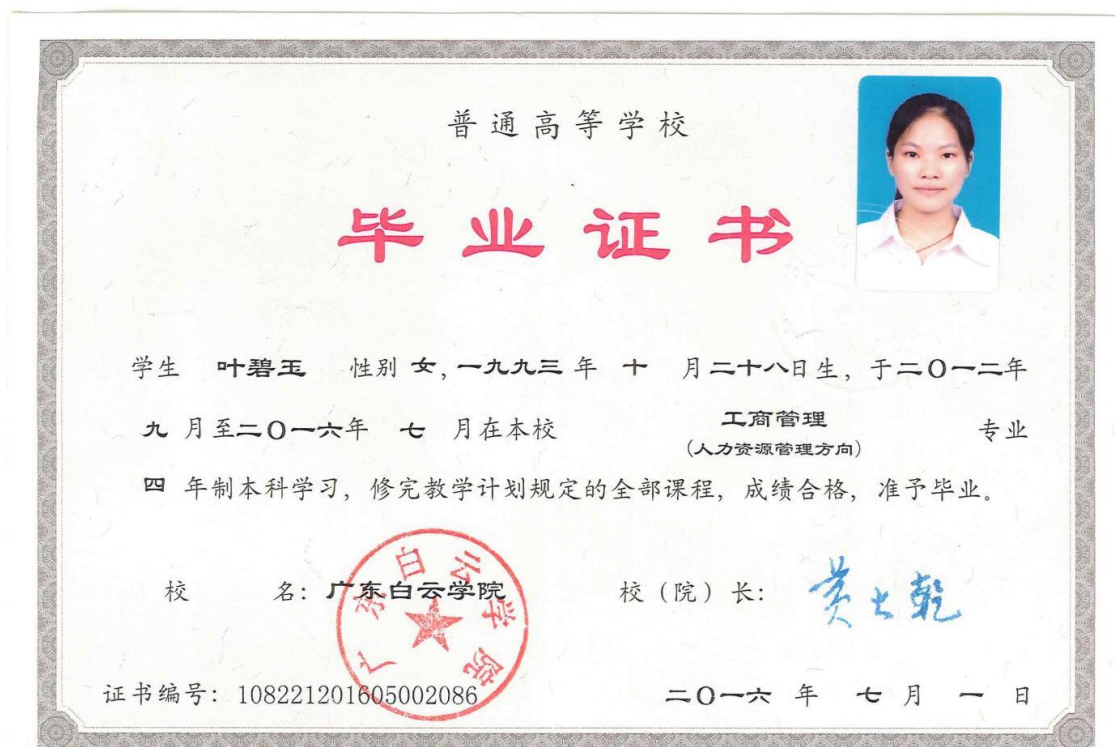 普通高等学校
毕业证书
学生 叶碧玉 性别 女，一九九三 年 十 月二十八日生，于二〇一二年
九 月至二〇一六年 七 月在本校 工商管理 专业
（人力资源管理方向）
四 年制本科学习，修完教学计划规定的全部课程，成绩合格，准予毕业。
校 名：广东白云学院 校（院）长：黄大乾
广东白云学院
证书编号：108221201605002086 二〇一六 年 七 月 一 日